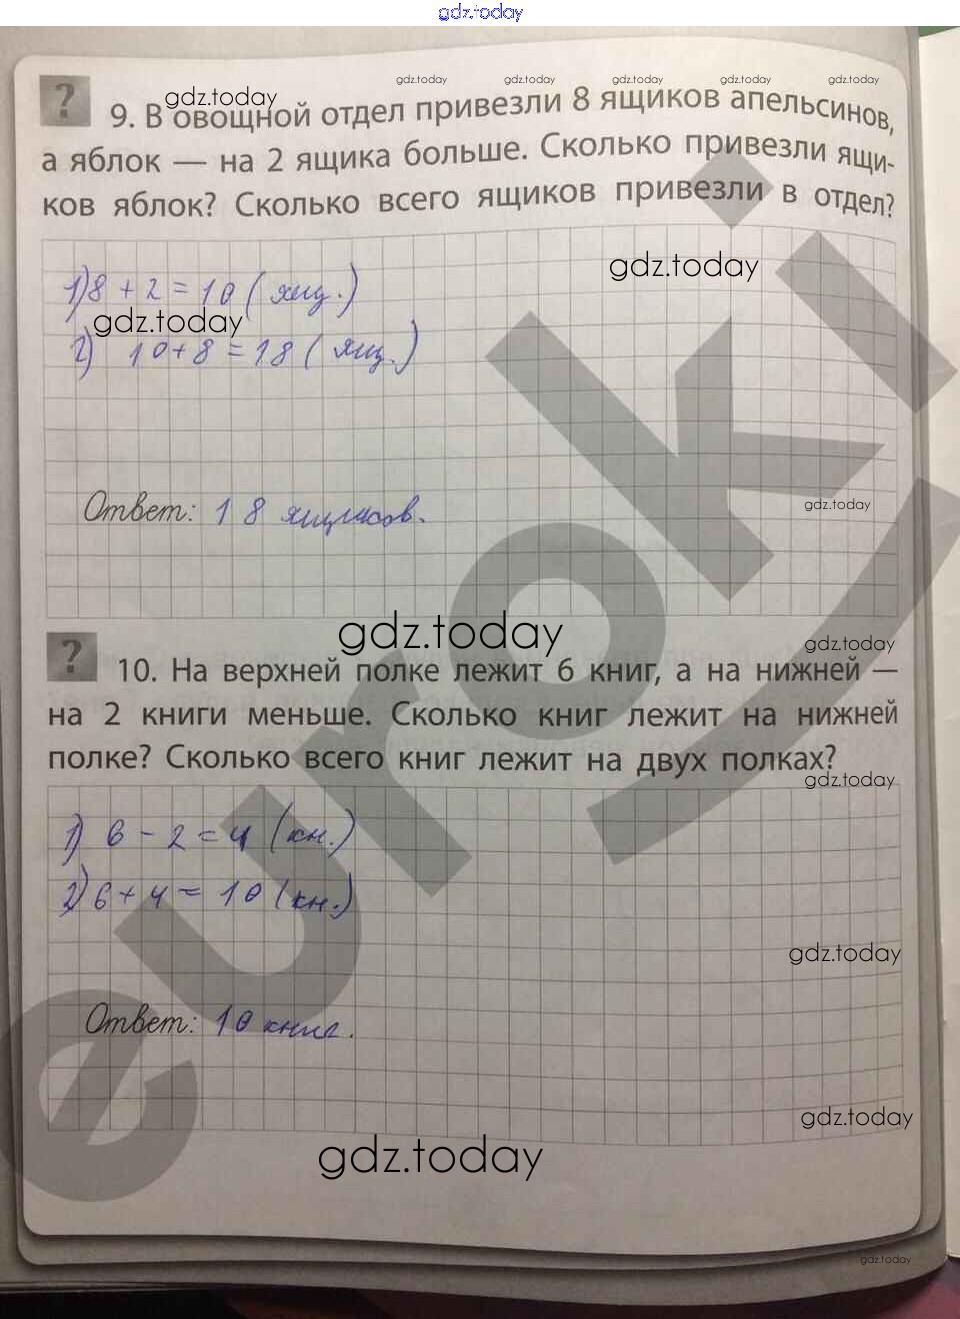 gdz.today
gdz.today gdz.today gdz.today gdz.today gdz.today
?
gdz.today
9. В овощной отдел привезли 8 ящиков апельсинов,
а яблок — на 2 ящика больше. Сколько привезли ящи-
ков яблок? Сколько всего ящиков привезли в отдел?
gdz.today
1) 8 + 2 = 10 ( ящ. )
gdz.today
2) 10 + 8 = 18 ( ящ. )
gdz.today
Ответ: 18 ящиков.
euroki
gdz.today
gdz.today
?
10. На верхней полке лежит 6 книг, а на нижней —
на 2 книги меньше. Сколько книг лежит на нижней
полке? Сколько всего книг лежит на двух полках?
gdz.today
1) 6 - 2 = 4 (кн.)
2) 6 + 4 = 10 (кн.)
gdz.today
Ответ: 10 книг.
gdz.today
gdz.today
gdz.today